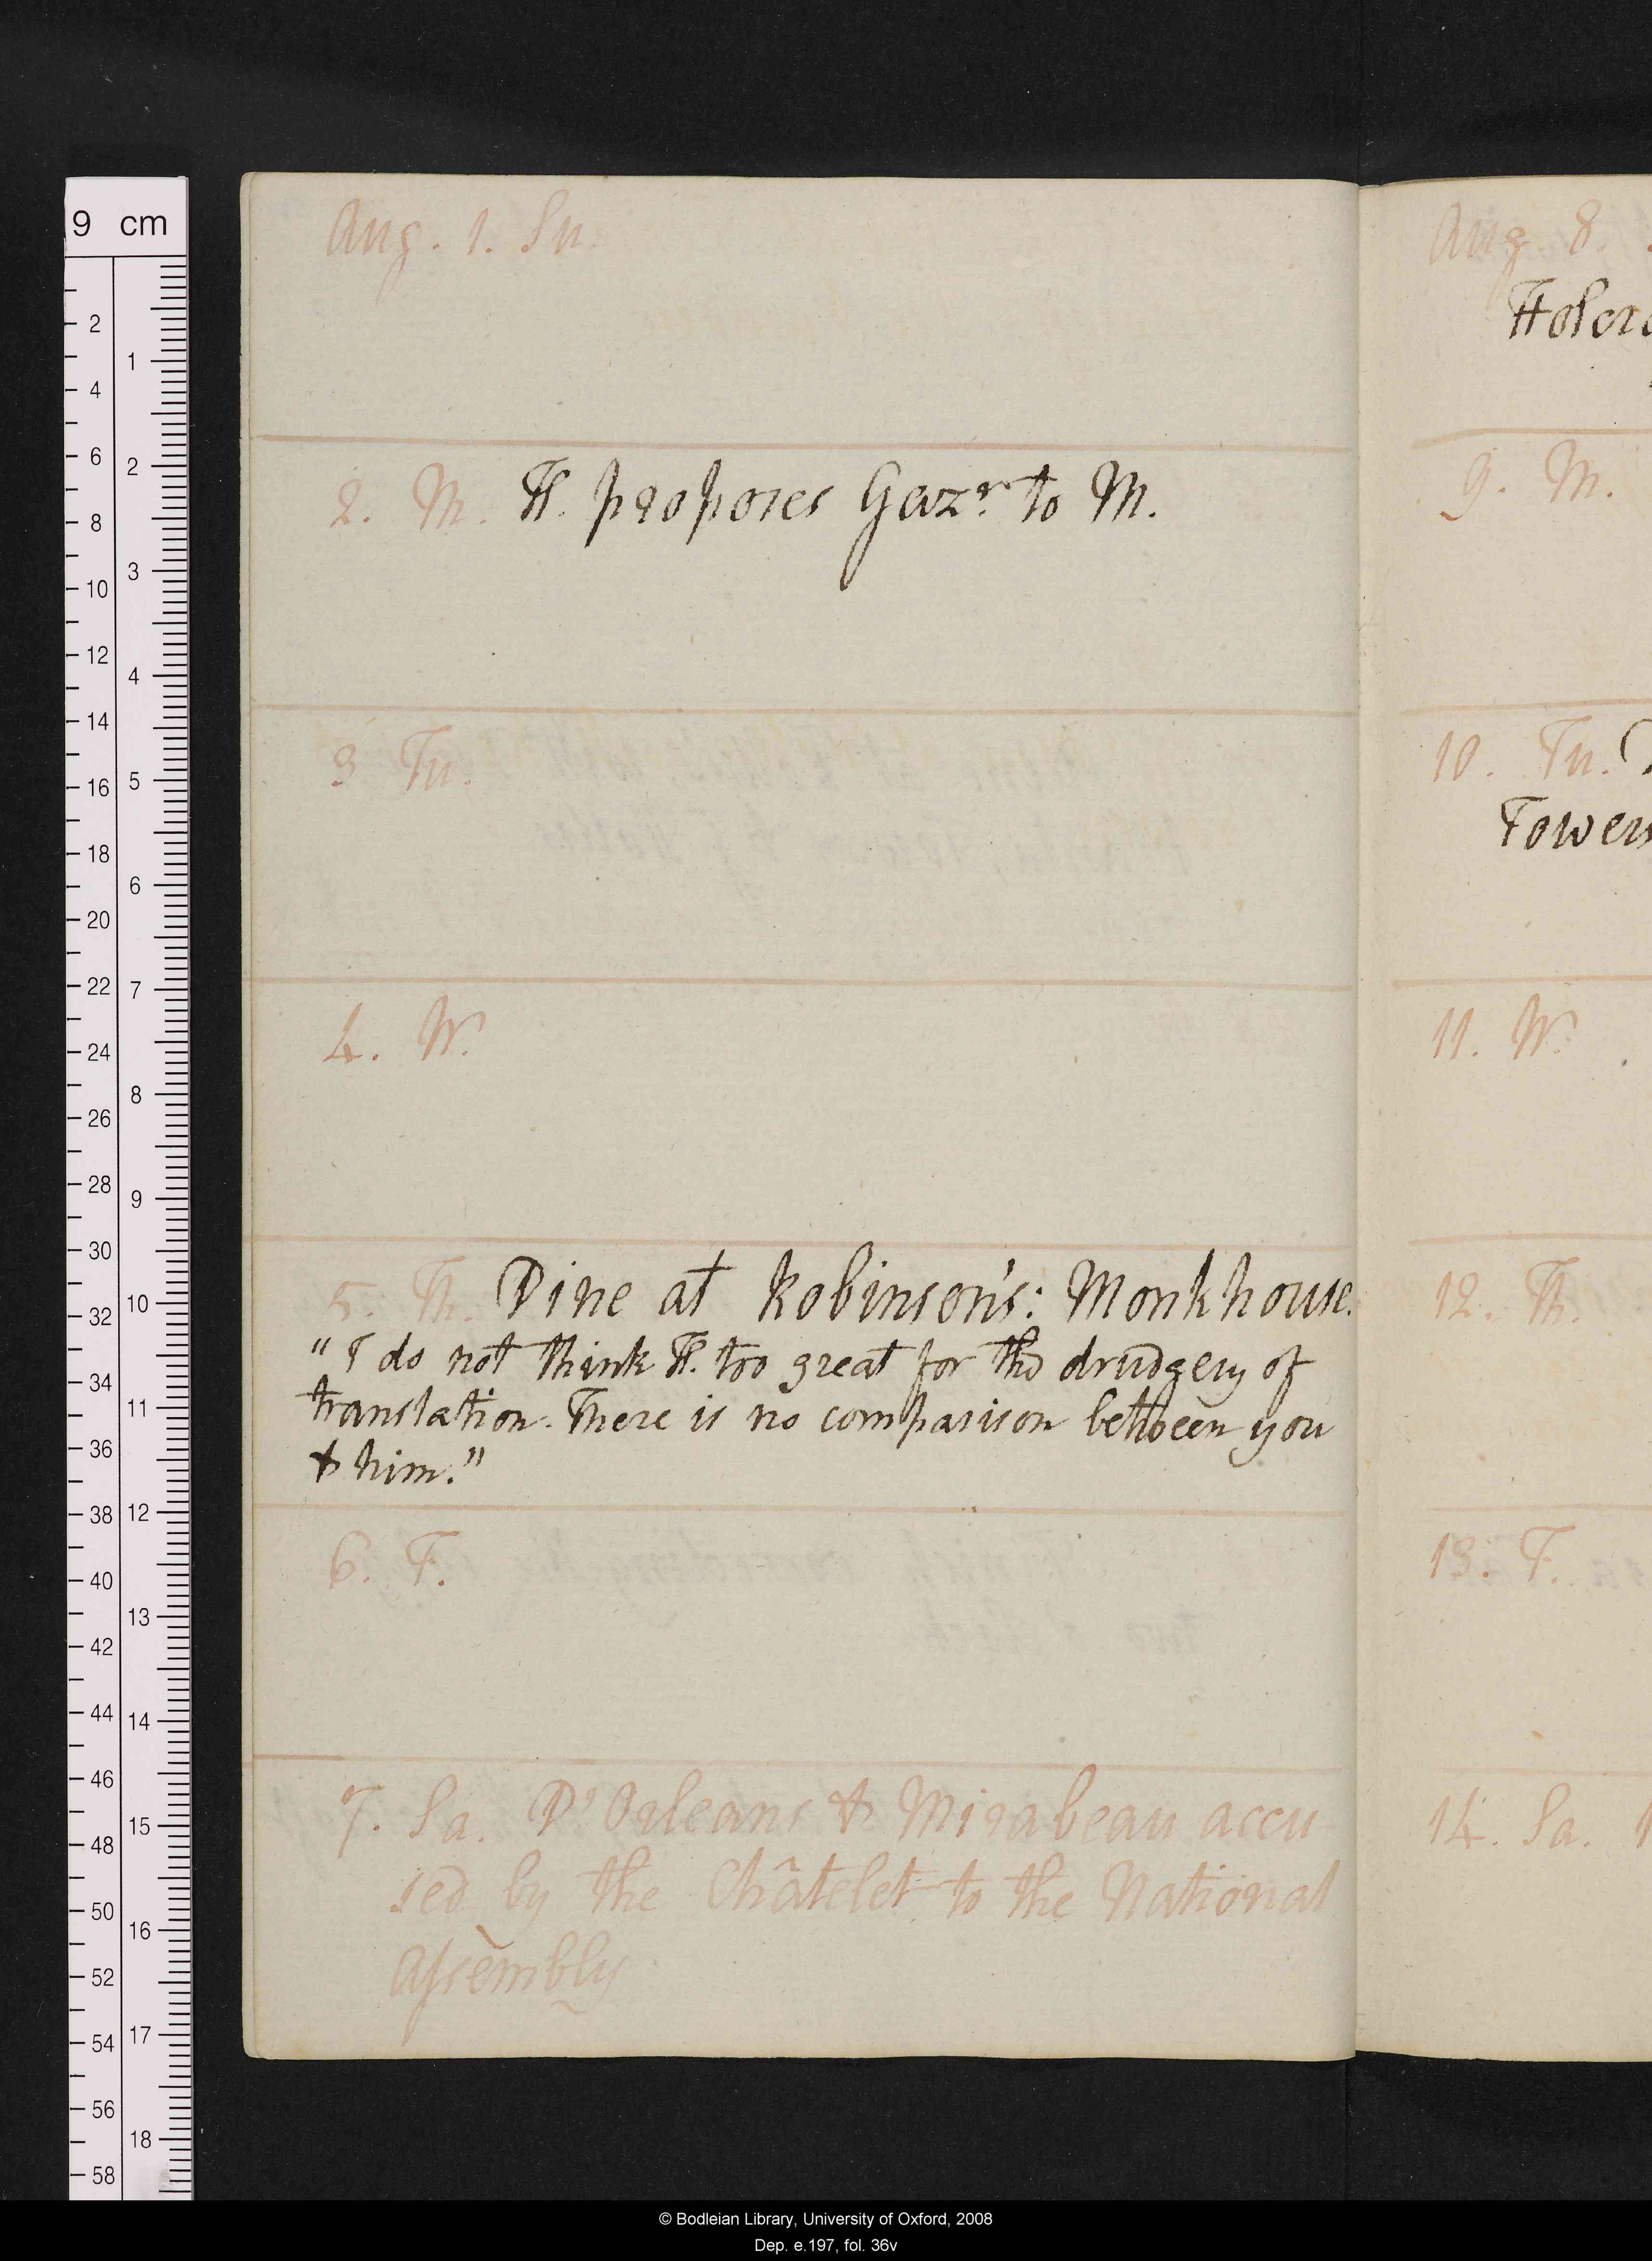 Aug. 1. Su.
2. M. H. proposes Gazr. to M.
3 Tu.
4. W.
5. Th. Dine at Robinson's: Monkhouse.
"I do not think H. too great for the drudgery of
translation. There is no comparison between you
& him."
6. F.
7. Sa. D'Orleans & Mirabeau accu
sed by the Châtelet to the National
Assembly
Aug 8.
Holcr
9. M.
10. Tu.
Towers
11. W.
12. Th.
13. F.
14. Sa.
9 cm
2
4
6
8
10
12
14
16
18
20
22
24
26
28
30
32
34
36
38
40
42
44
46
48
50
52
54
56
58
1
2
3
4
5
6
7
8
9
10
11
12
13
14
15
16
17
18
© Bodleian Library, University of Oxford, 2008
Dep. e.197, fol. 36v